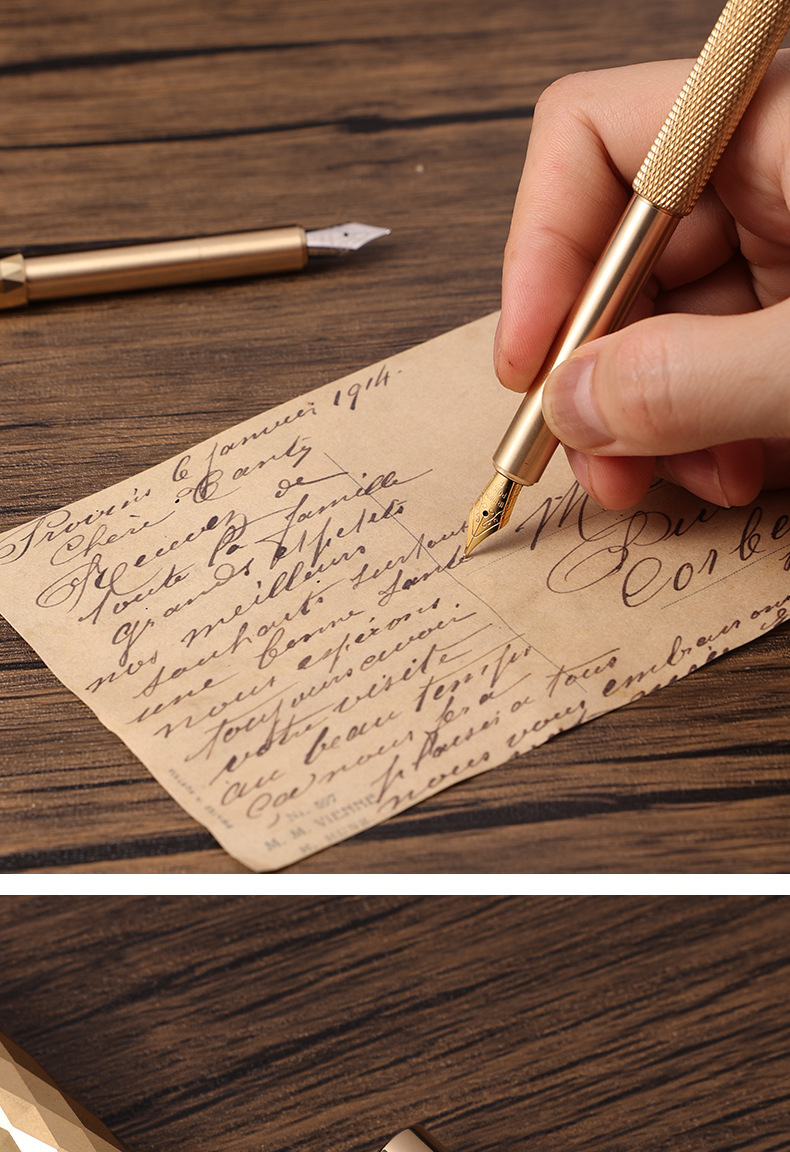 Provins 6 janvier 1914.
Chère Tante
Recevez de
toute la famille
grands et petits
nos meilleurs
souhaits surtout
une bonne santé
nous espérons
toujours avoir
votre visite
au beau temps
ça nous fera
plaisir a tous
nous vous embrassons
M
Corbe
No. 607
M. M. VIENNE
M. MUNK